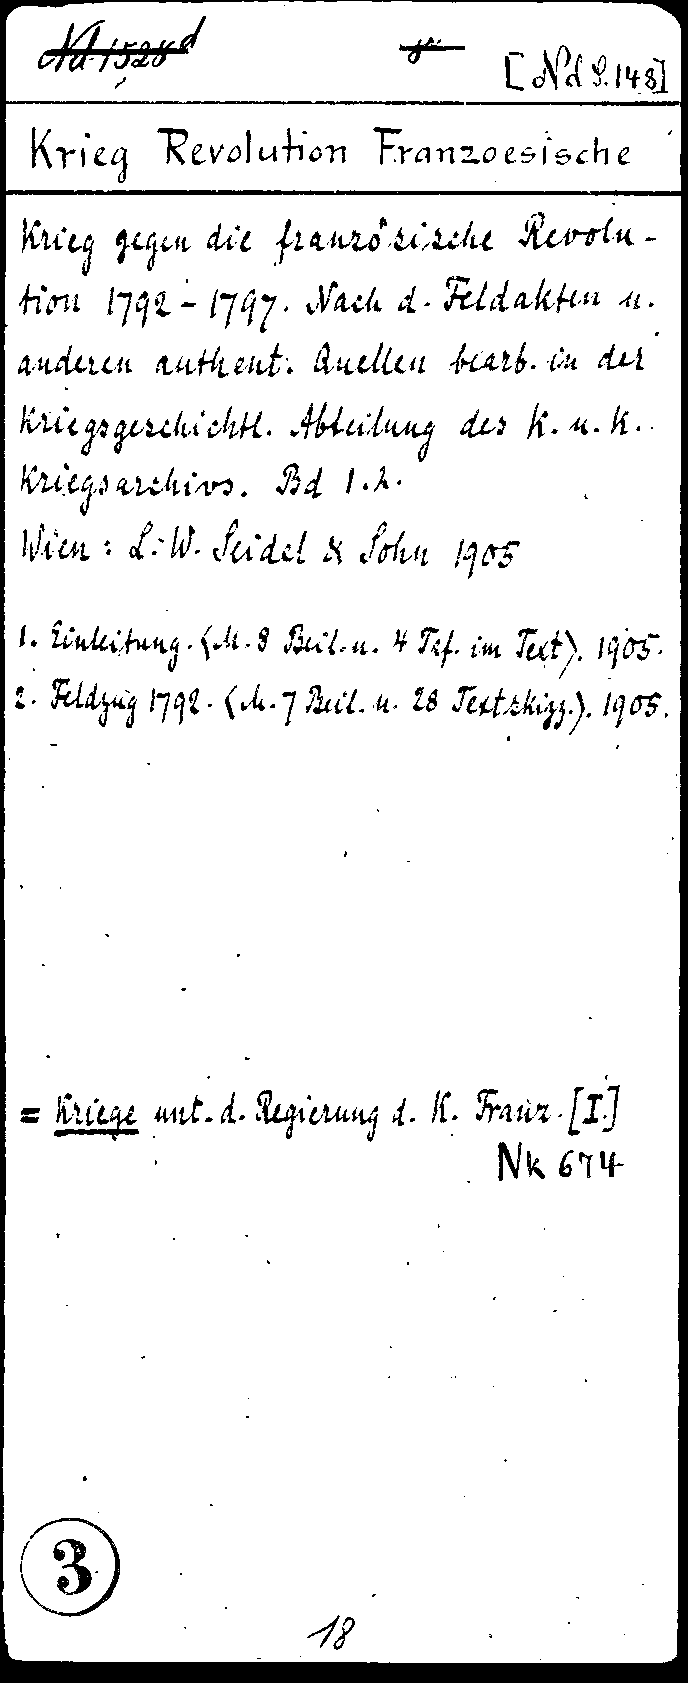 Nd 1528 d 8° [Nd 8.148]
Krieg Revolution Franzoesische
Krieg gegen die französische Revolu-
tion 1792-1797. Nach d. Feldakten u.
anderen authent. Quellen bearb. in der
Kriegsgeschichtl. Abteilung des K. u. K.
Kriegsarchivs. Bd 1.2.
Wien: L. W. Seidel & Sohn 1905
1. Einleitung. (M. 8 Beil. u. 4 Taf. im Text). 1905.
2. Feldzug 1792. (M. 7 Beil. u. 28 Textskizz.). 1905.
= Kriege unt. d. Regierung d. K. Franz. [I.]
Nk 674
3
18